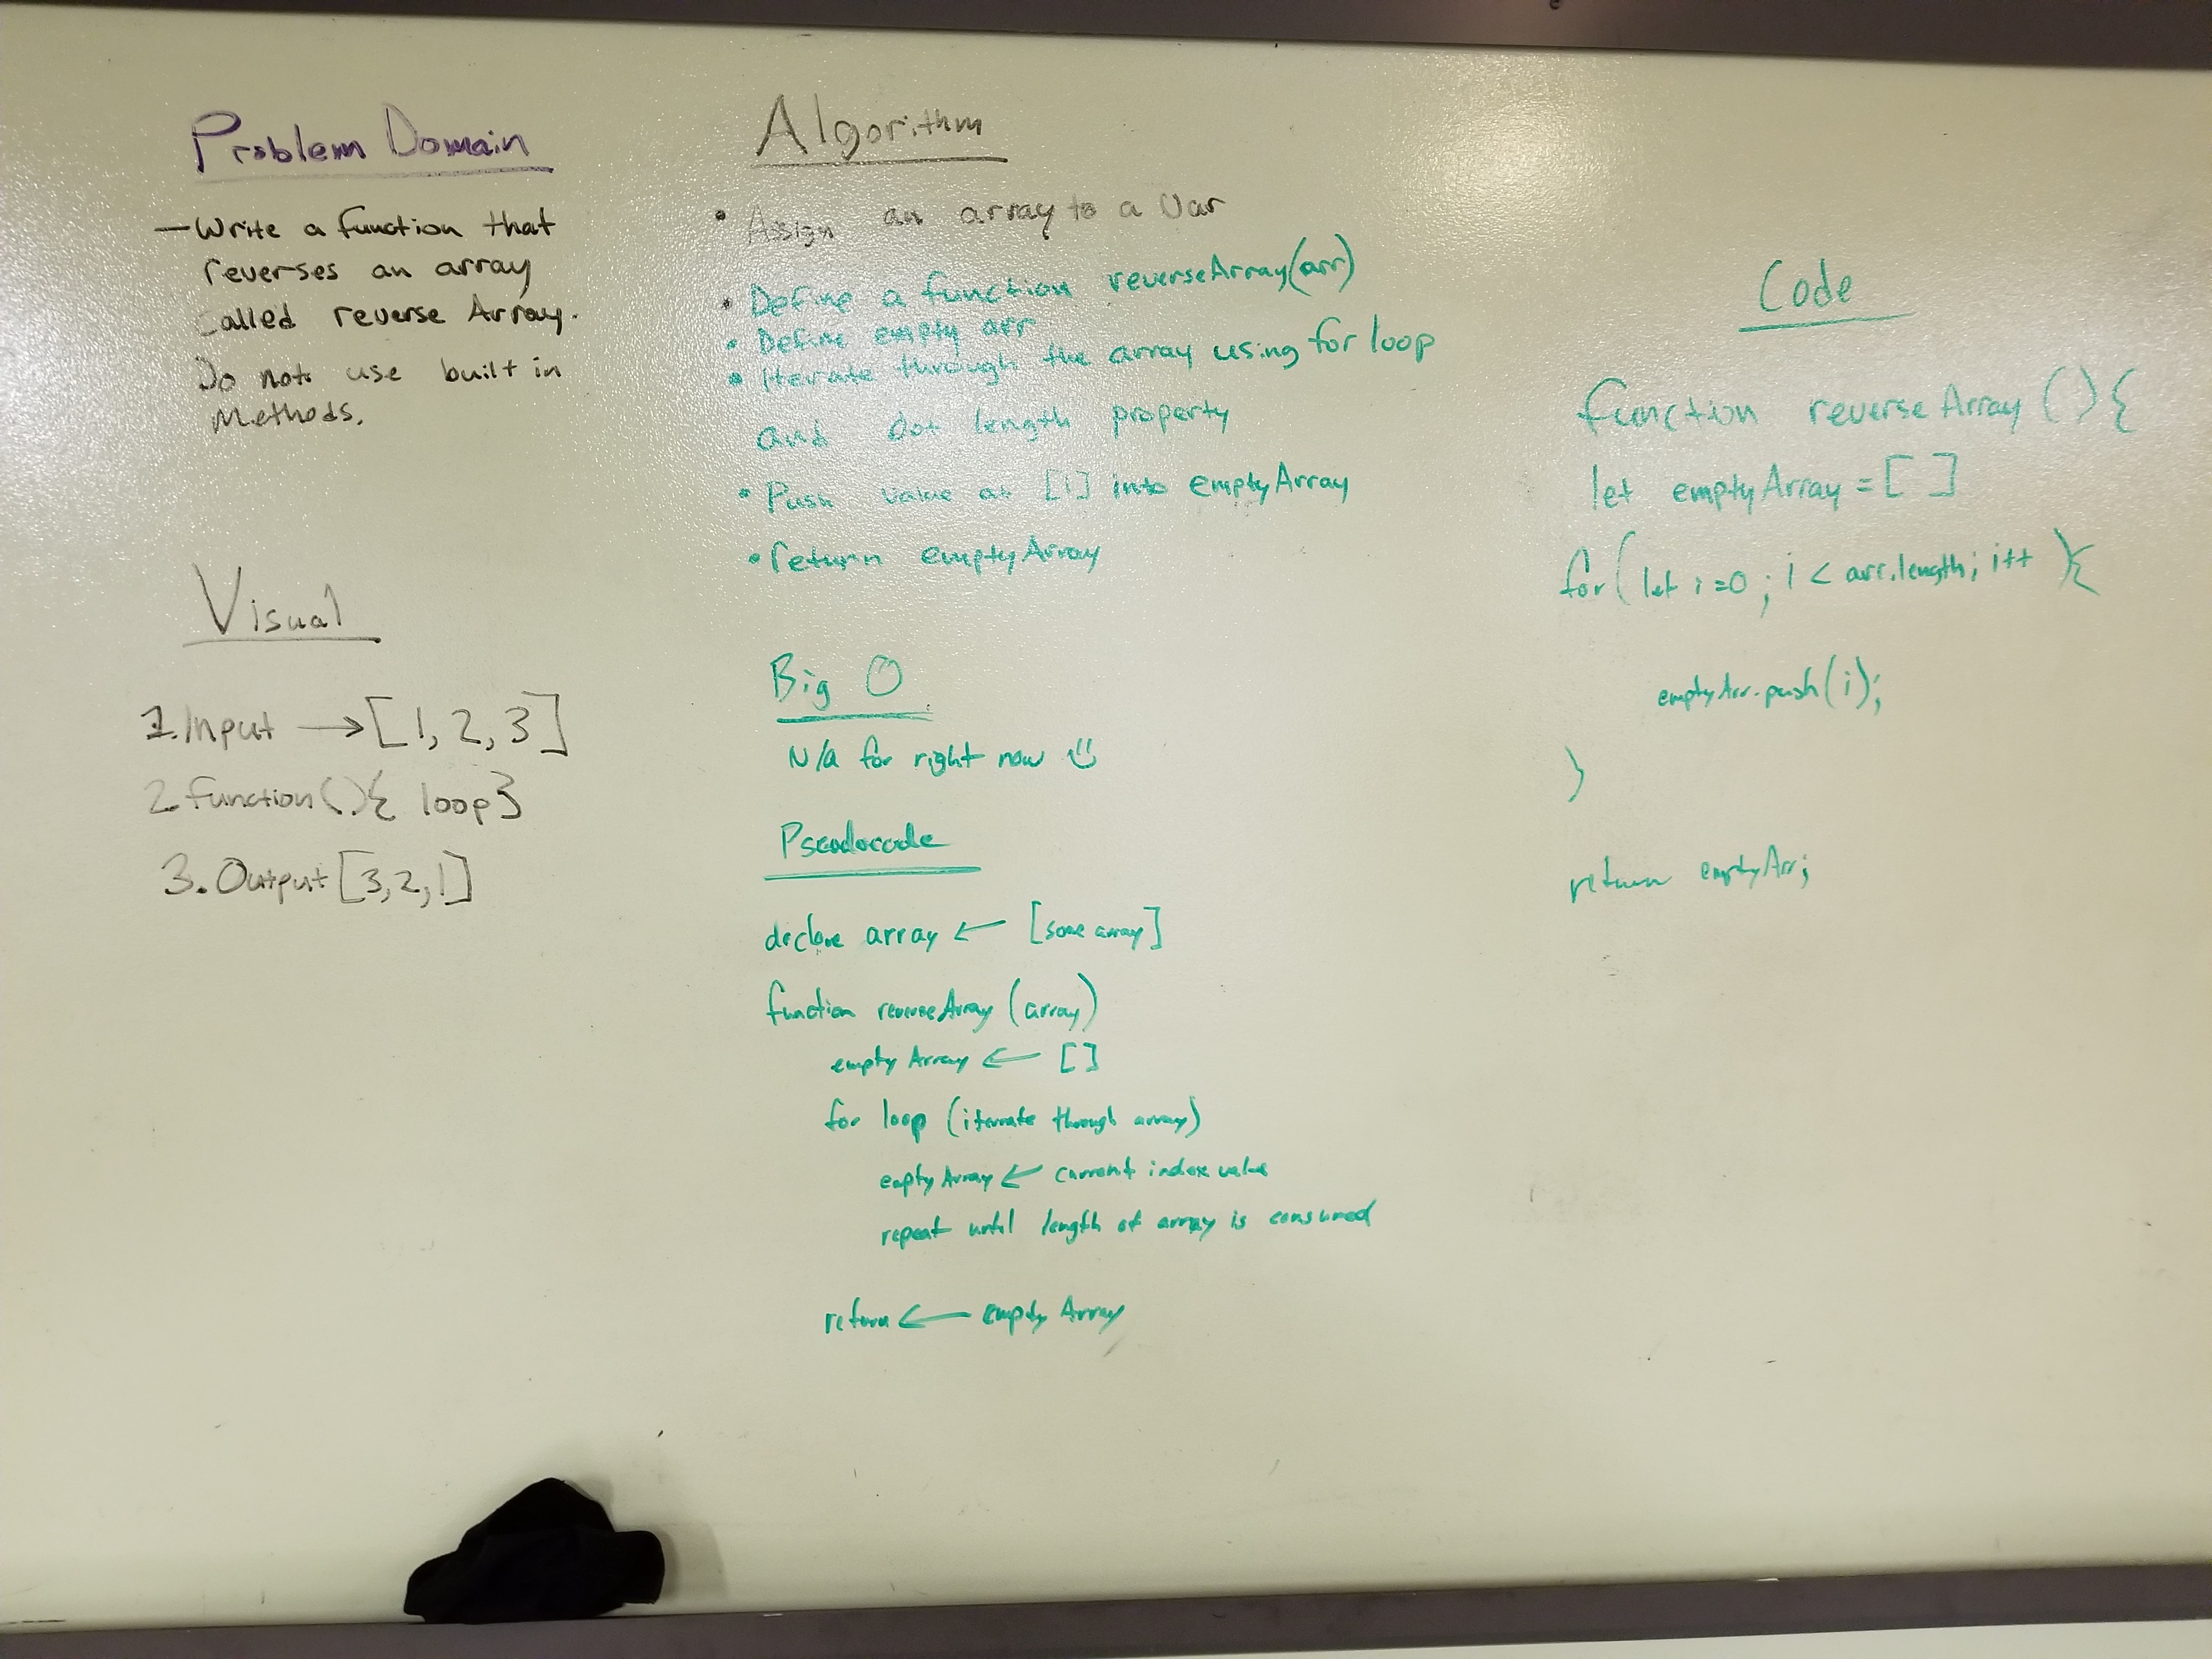 Problem Domain
— Write a function that
reverses an array
called reverse Array.
Do not use built in
Methods.
Visual
1. Input → [1, 2, 3]
2. function(){ loop}
3. Output [3,2,1]
Algorithm
• Assign an array to a var
• Define a function reverseArray(arr)
• Define empty arr
• Iterate through the array using for loop
and dot length property
• Push value at [i] into emptyArray
• return emptyArray
Big O
N/a for right now
Pseudocode
declare array ← [some array]
function reverseArray (array)
empty Array ← []
for loop (iterate through array)
empty Array ← current index value
repeat until length of array is consumed
return ← empty Array
Code
function reverseArray () {
let emptyArray = [ ]
for ( let i=0 ; i < arr.length; i++ ) {
emptyArr.push(i);
}
return emptyArr;